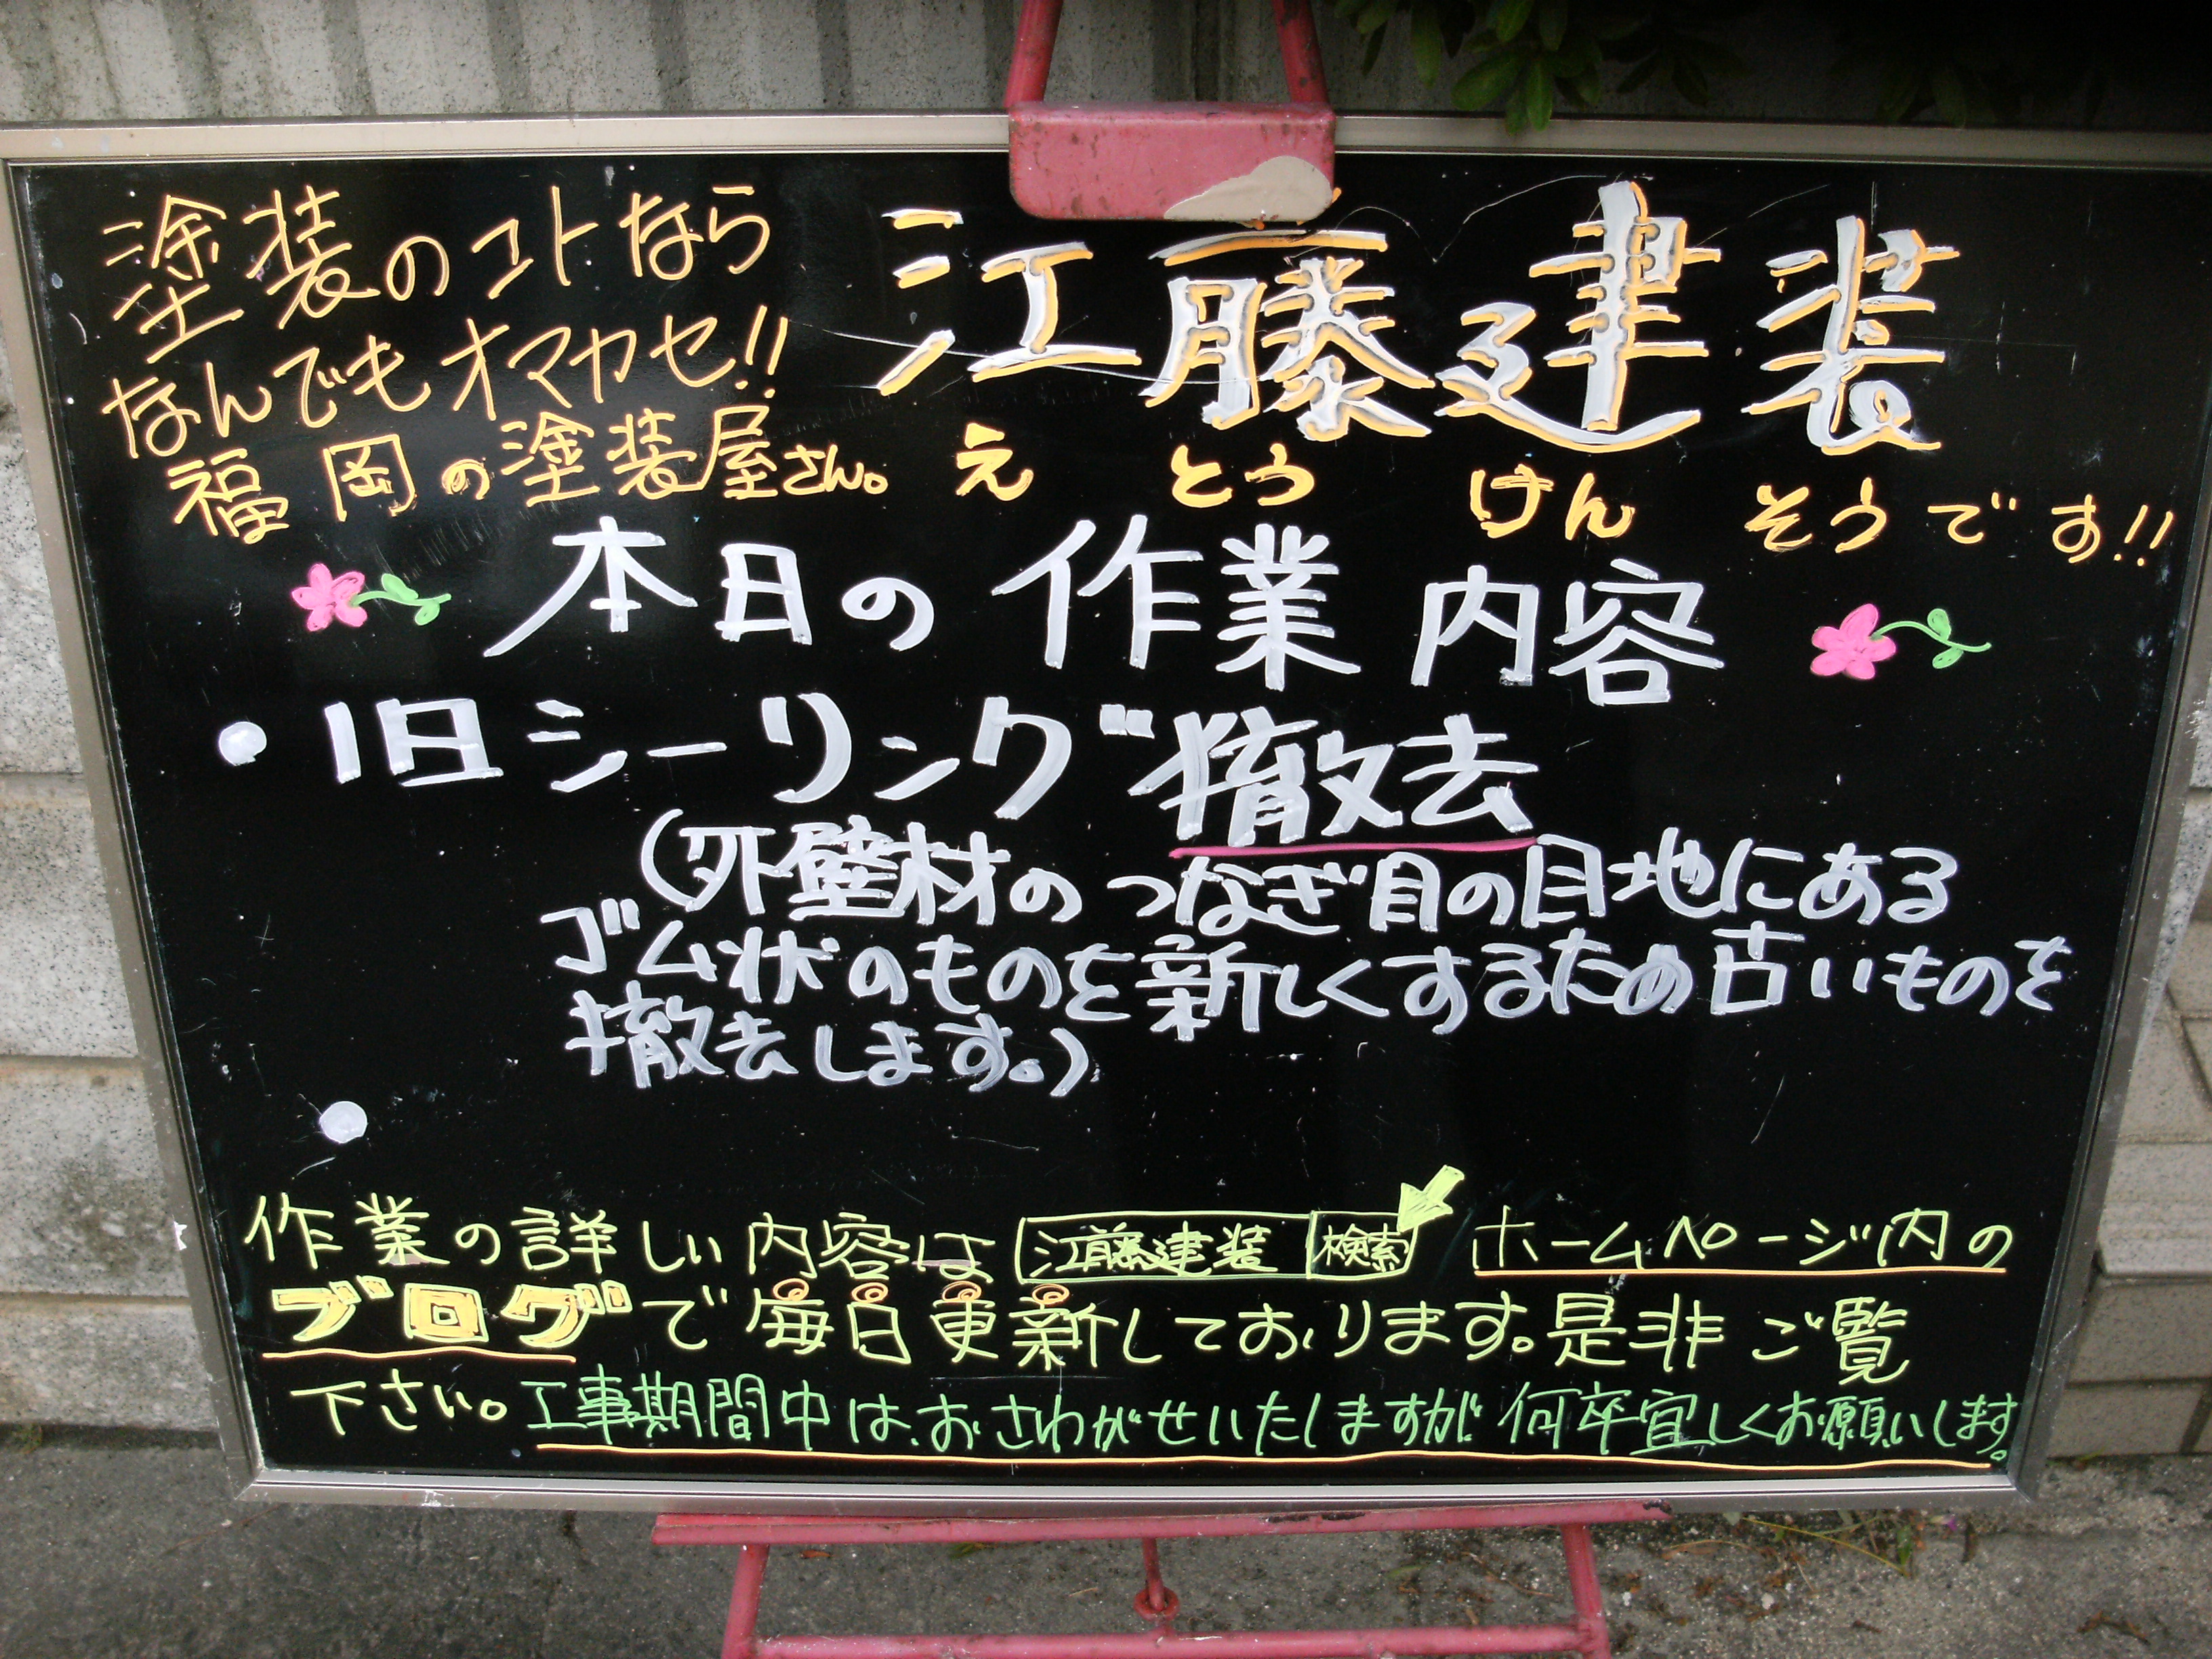 塗装のコトなら
なんでもオマカセ!!
福岡の塗装屋さん。
江藤建装
えとうけんそうです!!
本日の作業内容
・旧シーリング撤去
(外壁材のつなぎ目の目地にある
ゴム状のものを新しくするため古いものを
撤去します。)
・
作業の詳しい内容は 江藤建装 検索 ホームページ内の
ブログで毎日更新しております。是非ご覧
下さい。工事期間中は、おさわがせいたしますが何卒宜しくお願いします。